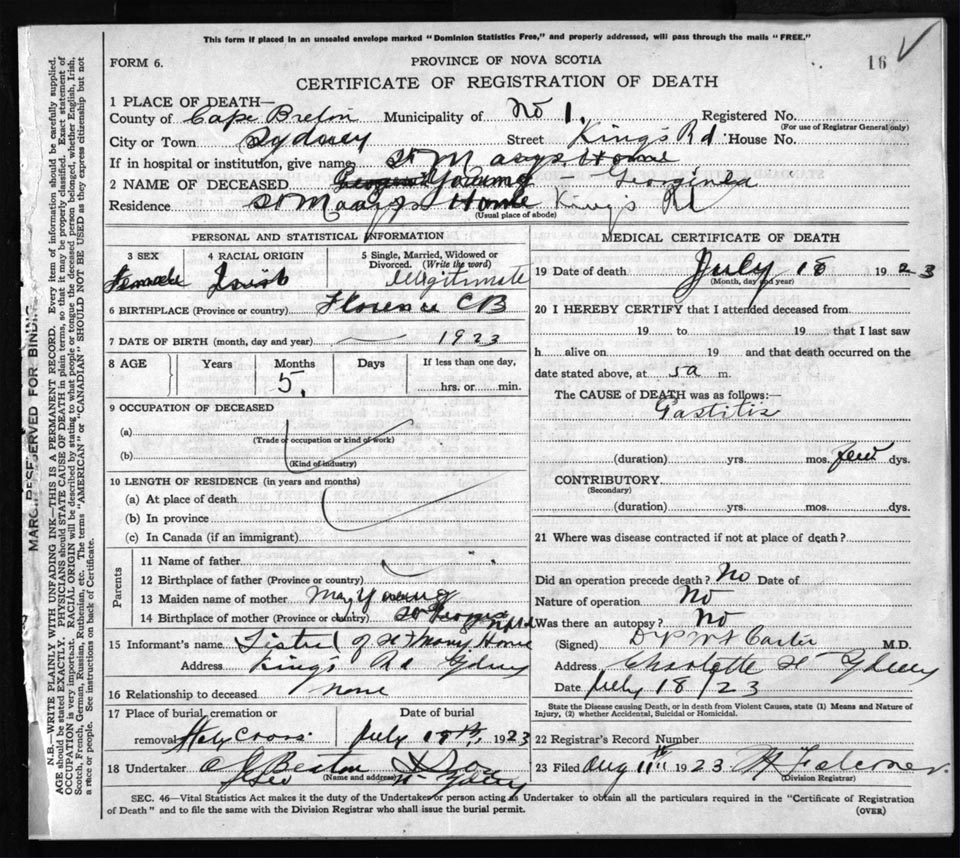 This form if placed in an unsealed envelope marked "Dominion Statistics Free," and properly addressed, will pass through the mails "FREE."
FORM 6.
PROVINCE OF NOVA SCOTIA
16
CERTIFICATE OF REGISTRATION OF DEATH
1 PLACE OF DEATH—
County of Cape Breton Municipality of No 1. Registered No.
(For use of Registrar General only)
City or Town Sydney Street King's Rd House No.
If in hospital or institution, give name St Marys Home
2 NAME OF DECEASED Young - Georgina
Residence St Marys Home King's Rd
(Usual place of abode)
PERSONAL AND STATISTICAL INFORMATION
3 SEX
4 RACIAL ORIGIN
5 Single, Married, Widowed or Divorced. (Write the word)
Female Irish Illegitimate
6 BIRTHPLACE (Province or country) Florence CB
7 DATE OF BIRTH (month, day and year) 1923
8 AGE Years Months Days If less than one day,
5. hrs. or min.
9 OCCUPATION OF DECEASED
(a)
(Trade or occupation or kind of work)
(b)
(Kind of industry)
10 LENGTH OF RESIDENCE (in years and months)
(a) At place of death
(b) In province
(c) In Canada (if an immigrant)
Parents
11 Name of father
12 Birthplace of father (Province or country)
13 Maiden name of mother May Young
14 Birthplace of mother (Province or country) St Georges Nfld
15 Informant's name of St Marys Home
Address King's Rd Sydney
16 Relationship to deceased none
17 Place of burial, cremation or removal Holy Cross
Date of burial
July 18th, 1923
18 Undertaker
(Name and address)
MEDICAL CERTIFICATE OF DEATH
19 Date of death July 18 1923
(Month, day and year)
20 I HEREBY CERTIFY that I attended deceased from
19 to 19 that I last saw
h alive on 19 and that death occurred on the
date stated above, at 5 a m.
The CAUSE of DEATH was as follows:—
Gastitis
(duration) yrs. mos. few dys.
CONTRIBUTORY
(Secondary)
(duration) yrs. mos. dys.
21 Where was disease contracted if not at place of death?
Did an operation precede death? No Date of
Nature of operation No
Was there an autopsy? No
(Signed) M.D.
Address Charlotte St Sydney
Date July 18/23
State the Disease causing Death, or in death from Violent Causes, state (1) Means and Nature of Injury, (2) whether Accidental, Suicidal or Homicidal.
22 Registrar's Record Number
23 Filed Aug 11th 1923
(Division Registrar)
SEC. 46—Vital Statistics Act makes it the duty of the Undertaker or person acting as Undertaker to obtain all the particulars required in the "Certificate of Registration
of Death" and to file the same with the Division Registrar who shall issue the burial permit.
(OVER)
MARGIN RESERVED FOR BINDING
N.B.—WRITE PLAINLY WITH UNFADING INK—THIS IS A PERMANENT RECORD. Every item of information should be carefully supplied.
AGE should be stated EXACTLY. PHYSICIANS should STATE CAUSE OF DEATH in plain terms, so that it may be properly classified. Exact statement of
OCCUPATION is very important. RACIAL ORIGIN will be described by stating to what people or tongue the deceased person belonged, whether English, Irish,
Scotch, French, German, Russian, Ruthenian, etc. The terms "AMERICAN" or "CANADIAN" SHOULD NOT BE USED as they express citizenship but not
a race or people. See instructions on back of Certificate.